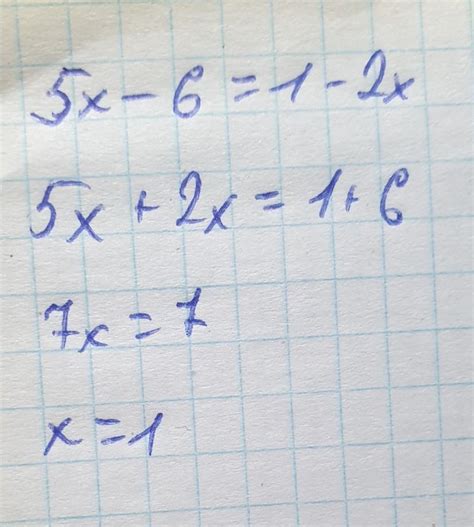 5x - 6 = 1 - 2x
5x + 2x = 1 + 6
7x = 7
x = 1